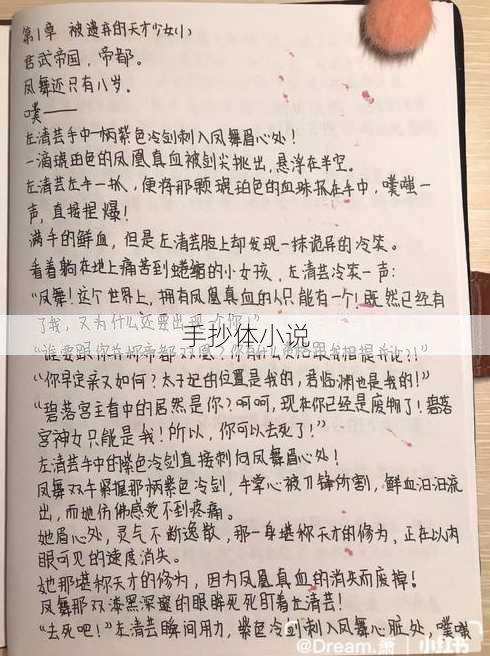 第1章 被遗弃的天才少女(1)
君武帝国，帝都。
凤舞还只有八岁。
噗——
左清芸手中一柄紫色冷剑刺入凤舞眉心处！
一滴琥珀色的凤凰真血被剑尖挑出，悬浮在半空。
左清芸左手一抓，便将那颗琥珀色的血珠抓在手中，噗嗤一
声，直接捏爆！
满手的鲜血，但是左清芸脸上却发现一抹诡异的冷笑。
看着躺在地上痛苦到蜷缩的小女孩，左清芸冷笑一声：
“凤舞！这个世界上，拥有凤凰真血的人只能有一个！既然已经有
了我，又为什么还要出现一个你！”
手抄体小说
“谁要跟你并称帝都双凰？你有什么资格跟我相提并论？！”
“你早定亲又如何？太子妃的位置是我的，君临渊也是我的！”
“碧落宫主看中的居然是你？呵呵，现在你已经是废物了！碧落
宫神女只能是我！所以，你可以去死了！”
左清芸手中的紫色冷剑直接刺向凤舞眉心处！
凤舞双手紧握那柄紫色冷剑，手掌心被刀锋所割，鲜血汩汩流
出，而她仿佛感觉不到疼痛。
她眉心处，灵气不断逸散，那一身堪称天才的修为，正在以肉
眼可见的速度消失。
她那堪称天才的修为，因为凤凰真血的消失而废掉！
凤舞那双漆黑深邃的眼眸死死盯着左清芸！
“去死吧！”左清芸瞬间用力，紫色冷剑刺入凤舞心脏处，噗嗤
@Dream.萧 小红书